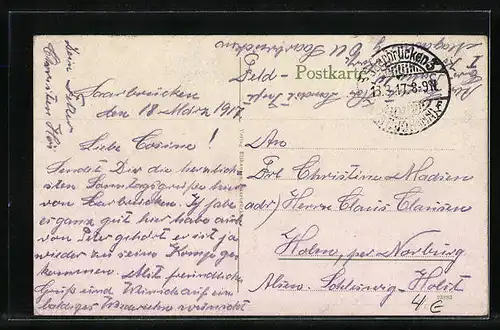 Feld-
Postkarte
Saarbrücken 3
8-9N
Saarbrücken
den 18 März 1917
Liebe Cosine!
Sendet Dir die herzlich
sten Sonntagsgrüße hier
von Saarbrücken. Ich habe
es ganz gut hier habe auch
von Peter gehört er ist ja
wieder zu seine Kompagni
gekommen. Mit freundlich
Gruß und Wunsch auf ein
baldiges Wiedersehn wünscht
Dein Vetter
Christen
An
Frl Christine Madsen
adr/ Herrn Claus Clausen
Holm, per Norburg
Alsen. Schleswig-Holst
4.€